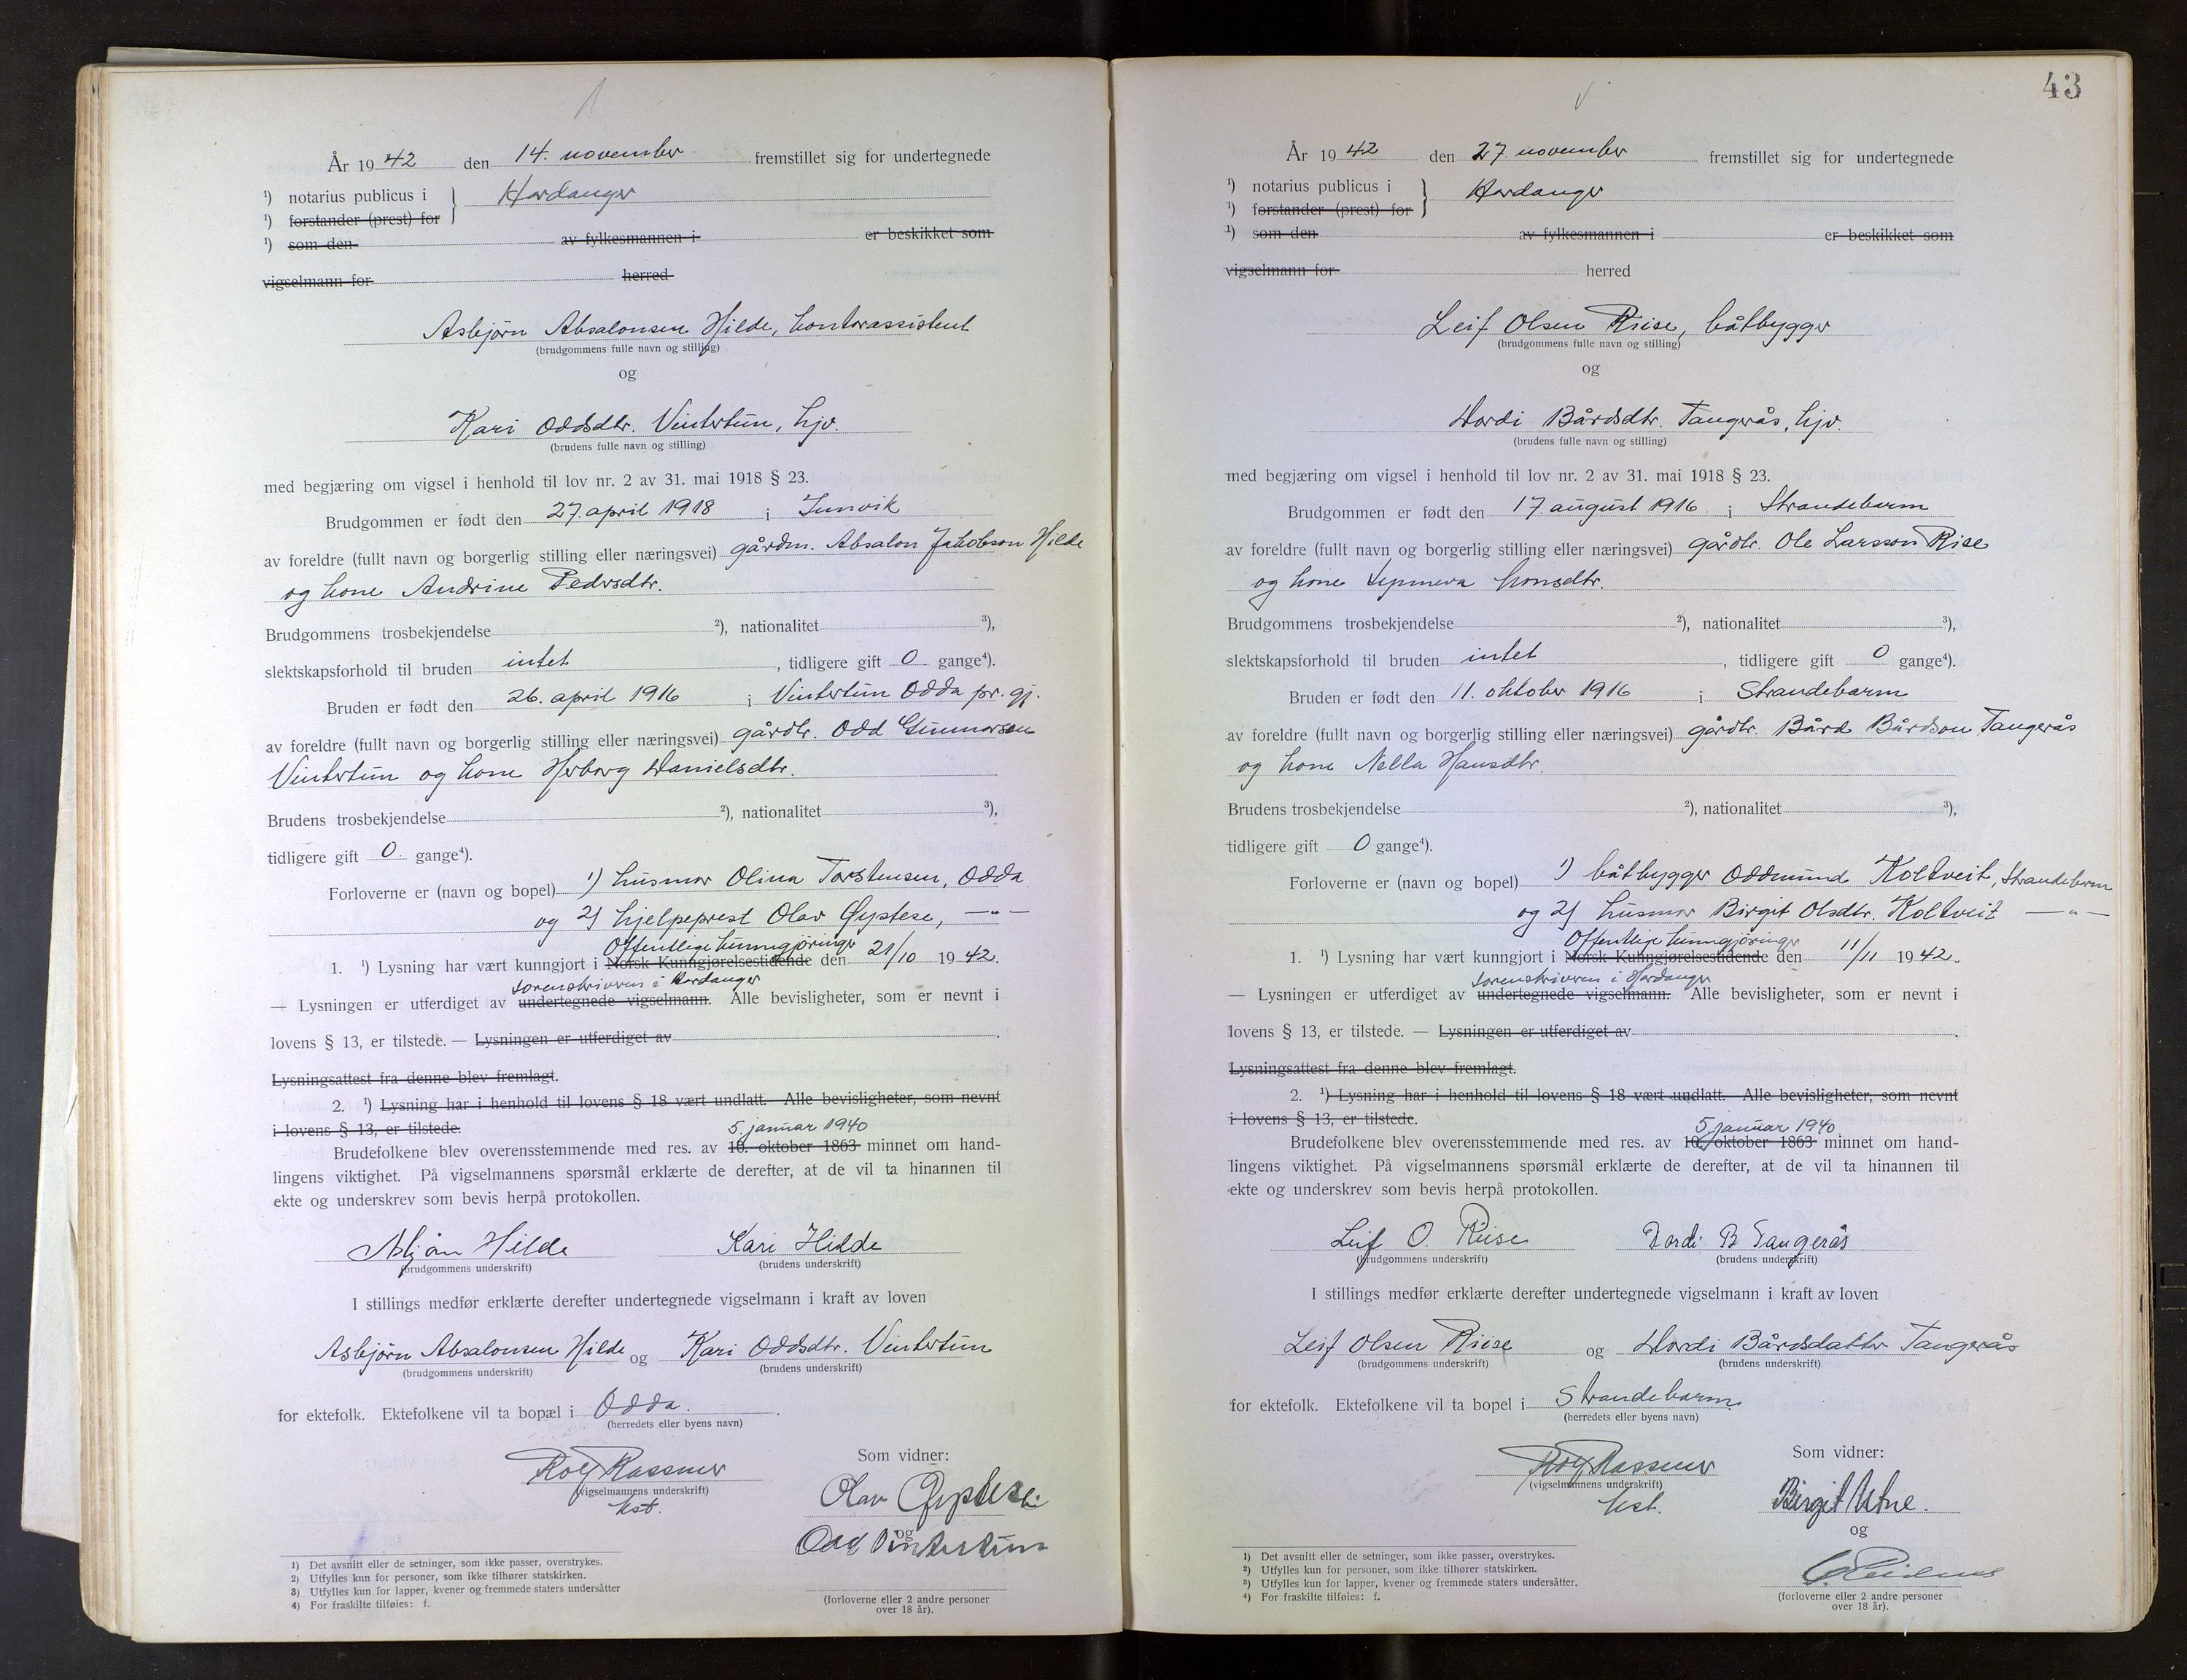 År 1942 den 14. november fremstillet sig for undertegnede
¹) notarius publicus i } Hardanger
¹) forstander (prest) for
¹) som den av fylkesmannen i er beskikket som
vigselmann for herred
Asbjörn Absalonsen Hilde, kontorassistent
(brudgommens fulle navn og stilling)
og
Kari Oddsdtr. Vintertun, hjv.
(brudens fulle navn og stilling)
med begjæring om vigsel i henhold til lov nr. 2 av 31. mai 1918 § 23.
Brudgommen er født den 27. april 1918 i Innvik
av foreldre (fullt navn og borgerlig stilling eller næringsvei) gårdm. Absalon Jakobson Hilde
og kone Andrine Pedersdtr.
Brudgommens trosbekjendelse ²), nationalitet ³),
slektskapsforhold til bruden intet, tidligere gift 0 gange⁴).
Bruden er født den 26. april 1916 i Vintertun Odda pr. gj.
av foreldre (fullt navn og borgerlig stilling eller næringsvei) gårdbr. Odd Gunnarson
Vintertun og kone Herborg Danielsdtr.
Brudens trosbekjendelse ²), nationalitet ³),
tidligere gift 0. gange⁴).
Forloverne er (navn og bopel) 1) husmor Olina Torstensen, Odda
og 2) hjelpeprest Olav Øystese, —„—
Offentlige kunngjöringer
1. ¹) Lysning har vært kunngjort i Norsk Kunngjørelsestidende den 21/10 1942.
sorenskriveren i Hardanger
— Lysningen er utferdiget av undertegnede vigselmann. Alle bevisligheter, som er nevnt i
lovens § 13, er tilstede. — Lysningen er utferdiget av .
Lysningsattest fra denne blev fremlagt.
2. ¹) Lysning har i henhold til lovens § 18 vært undlatt. Alle bevisligheter, som nevnt
i lovens § 13, er tilstede.
5. januar 1940
Brudefolkene blev overensstemmende med res. av 10. oktober 1863 minnet om hand-
lingens viktighet. På vigselmannens spørsmål erklærte de derefter, at de vil ta hinannen til
ekte og underskrev som bevis herpå protokollen.
Asbjörn Hilde Kari Hilde
(brudgommens underskrift) (brudens underskrift)
I stillings medfør erklærte derefter undertegnede vigselmann i kraft av loven
Asbjörn Absalonsen Hilde og Kari Oddsdtr. Vintertun
(brudgommens underskrift) (brudens underskrift)
for ektefolk. Ektefolkene vil ta bopæl i Odda.
(herredets eller byens navn)
Som vidner:
Rolf Rassmer
(vigselmannens underskrift)
kst.
Olav Øystese
og
Odd Vintertun
(forloverne eller 2 andre personer
over 18 år).
1) Det avsnitt eller de setninger, som ikke passer, overstrykes.
2) Utfylles kun for personer, som ikke tilhører statskirken.
3) Utfylles kun for lapper, kvener og fremmede staters undersåtter
4) For fraskilte tilføies: f.
43
År 1942 den 27. november fremstillet sig for undertegnede
¹) notarius publicus i } Hardanger
¹) forstander (prest) for
¹) som den av fylkesmannen i er beskikket som
vigselmann for herred
Leif Olsen Riise, båtbygger
(brudgommens fulle navn og stilling)
og
Dordi Bårdsdtr. Tangerås, hjv.
(brudens fulle navn og stilling)
med begjæring om vigsel i henhold til lov nr. 2 av 31. mai 1918 § 23.
Brudgommen er født den 17. august 1916 i Strandebarm
av foreldre (fullt navn og borgerlig stilling eller næringsvei) gårdbr. Ole Larsson Rise
og kone
Brudgommens trosbekjendelse ²), nationalitet ³),
slektskapsforhold til bruden intet, tidligere gift 0 gange⁴).
Bruden er født den 11. oktober 1916 i Strandebarm
av foreldre (fullt navn og borgerlig stilling eller næringsvei) gårdbr. Bård Bårdson Tangerås
og kone Nella Hansdtr.
Brudens trosbekjendelse ²), nationalitet ³),
tidligere gift 0 gange⁴).
Forloverne er (navn og bopel) 1) båtbygger Oddmund Koltveit, Strandebarm
og 2) husmor Birgit Olsdtr. Koltveit —„—
Offentlige kunngjöringer
1. ¹) Lysning har vært kunngjort i Norsk Kunngjørelsestidende den 11/11 1942.
sorenskriveren i Hardanger
— Lysningen er utferdiget av undertegnede vigselmann. Alle bevisligheter, som er nevnt i
lovens § 13, er tilstede. — Lysningen er utferdiget av .
Lysningsattest fra denne blev fremlagt.
2. ¹) Lysning har i henhold til lovens § 18 vært undlatt. Alle bevisligheter, som nevnt
i lovens § 13, er tilstede.
5. januar 1940
Brudefolkene blev overensstemmende med res. av 10. oktober 1863 minnet om hand-
lingens viktighet. På vigselmannens spørsmål erklærte de derefter, at de vil ta hinannen til
ekte og underskrev som bevis herpå protokollen.
Leif O. Riise Dordi B Tangerås
(brudgommens underskrift) (brudens underskrift)
I stillings medfør erklærte derefter undertegnede vigselmann i kraft av loven
Leif Olsen Riise og Dordi Bårdsdatter Tangerås
(brudgommens underskrift) (brudens underskrift)
for ektefolk. Ektefolkene vil ta bopel i Strandebarm.
(herredets eller byens navn)
Som vidner:
Rolf Rassmer
(vigselmannens underskrift)
kst.
Birgit Utne.
og
(forloverne eller 2 andre personer
over 18 år).
1) Det avsnitt eller de setninger, som ikke passer, overstrykes.
2) Utfylles kun for personer, som ikke tilhører statskirken.
3) Utfylles kun for lapper, kvener og fremmede staters undersåtter.
4) For fraskilte tilføies: f.